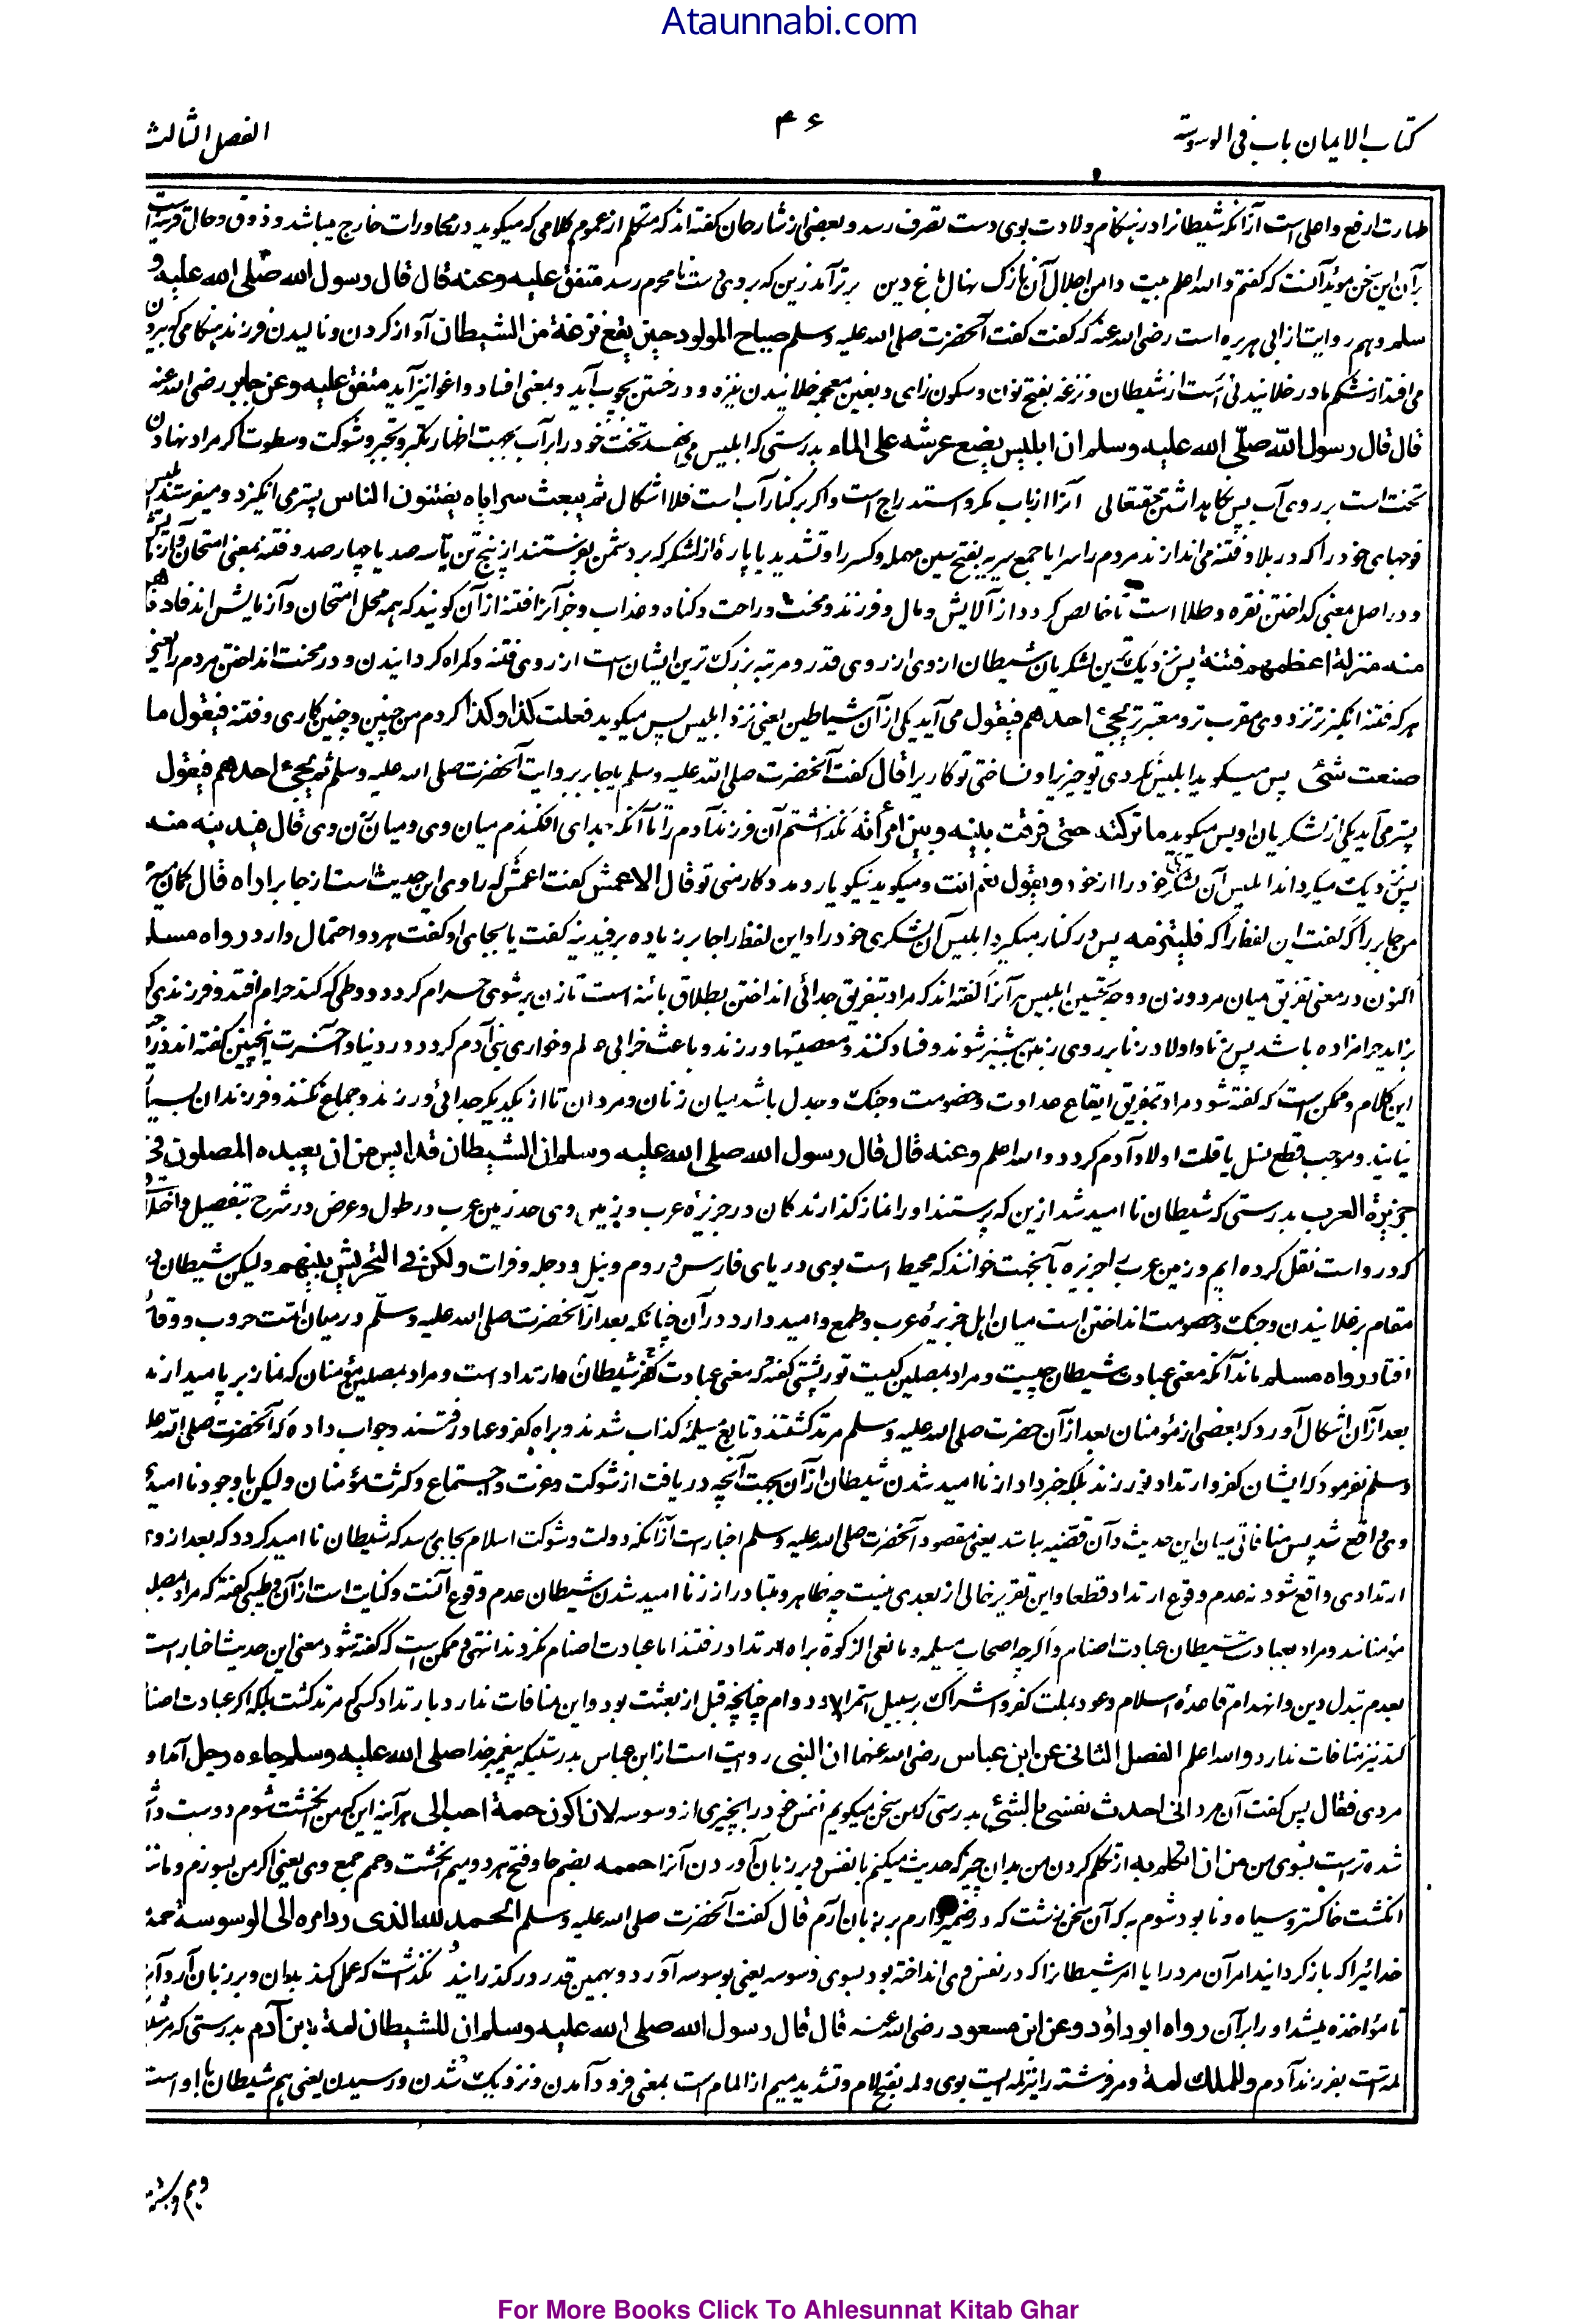 Ataunnabi.com
کتاب الایمان باب فی الوسوسة
۴۶
الفصل الثالث
طهارت ارفع و اعلی است از آنکه شیطان را در هنگام ولادت بوی دست تصرف رسد و بعضی از شارحان گفته اند که متکلم از عموم کلامی که میگوید در محاورات خارج میباشد و ذوق و حال قرینه است
بر آن این سخن مؤید آنست که گفتم و الله اعلم بیت دامن اجلال آن نازک نهال باغ دین برتر آمد زین که بروی دست نامحرم رسد متفق علیه وعنه قال قال رسول الله صلی الله علیه و
سلم و هم روایت از ابی هریره است رضی الله عنه که گفت گفت آنحضرت صلی الله علیه وسلم صیاح المولود حین یقع نزغة من الشیطان آواز کردن و نالیدن فرزند هنگامی که بیرون
می افتد از شکم مادر خلانیدنی است از شیطان و نزغه بفتح نون و سکون زای و بغین معجمه خلانیدن نیزه و درختن بچوب آید و بمعنی افساد و اغوا نیز آید متفق علیه وعن جابر رضی الله عنه
قال قال رسول الله صلی الله علیه وسلم ان ابلیس یضع عرشه علی الماء بدرستی که ابلیس می نهد تخت خود را بر آب بجهت اظهار تکبر و تجبر و شوکت و سطوت اگر مراد نهادن
تخت است بر روی آب پس نگاهداشتن حقتعالی آنرا از باب مکر و استدراج است و اگر بر کنار آب است فلا اشکال ثم یبعث سرایاه یفتنون الناس پستر می انگیزد و میفرستد ابلیس
فوجهای خود را که در بلا و فتنه می اندازند مردم را سرایا جمع سریه بفتح سین مهمله و کسر را و تشدید یا پارهٔ از لشکر که بر دشمن بفرستند از پنج تن تا سه صد یا چهار صد و فتنه بمعنی امتحان و آزمایش
و در اصل معنی گداختن نقره و طلا است تا خالص گردد از آلایش و مال و فرزند و محنت و راحت و گناه و عذاب و جز آنرا فتنه از آن گویند که همه محل امتحان و آزمایش اند فادناهم
منه منزلة اعظمهم فتنة پس نزدیک ترین لشکریان شیطان از وی از روی قدر و مرتبه بزرگ ترین ایشان است از روی فتنه و گمراه گردانیدن و در محنت انداختن مردم را یعنی
هر که فتنه انگیزتر نزد وی مقرب تر و معتبرتر یجیء احدهم فیقول می آید یکی از آن شیاطین یعنی نزد ابلیس پس میگوید فعلت کذا و کذا کردم من چنین و چنین کاری و فتنه فیقول ما
صنعت شیئ پس میگوید ابلیس نکردی تو چیزی را و نساختی تو کاری را قال گفت آنحضرت صلی الله علیه وسلم یا جابر بروایت آنحضرت صلی الله علیه وسلم ثم یجیء احدهم فیقول
پستر می آید یکی از لشکریان او پس میگوید ما ترکته حتی فرقت بینه وبین امرأته نگذاشتم آن فرزند آدم را تا آنکه جدای افگندم میان وی و میان زن وی قال فیدنیه منه
پس نزدیک میگرداند ابلیس آن لشکری خود را از خود و یقول نعم انت و میگوید نیکو یار و مددگار منی تو قال الاعمش گفت اعمش که راوی این حدیث است از جابر اراه قال گمان میبرم
من جابر را که گفت این لفظ را که فیلتزمه پس در کنار میگیرد ابلیس آن لشکری خود را و این لفظ را جابر زیاده بر فیدنیه گفت یا بجای او گفت هر دو احتمال دارد رواه مسلم
اکنون در معنی تفریق میان مرد و زن و وجه تحسین ابلیس مر آنرا گفته اند که مراد بتفریق جدائی انداختن بطلاق بائنه است تا زن بر شوی حرام گردد و وطی که کند حرام افتد و فرزندی که
زاید حرامزاده باشد پس زنا و اولاد زنا بر روی زمین بیشتر شوند و فساد کنند و معصیتها ورزند و باعث خرابی عالم و خواری بنی آدم گردد در دنیا و آخرت اینچنین گفته اند در
این کلام و ممکن است که گفته شود مراد بتفریق ایقاع عداوت و خصومت و جنگ و جدل باشد میان زنان و مردان تا از یکدیگر جدائی ورزند و جماع نکنند و فرزندان بسیار
نیابند و موجب قطع نسل یا قلت اولاد آدم گردد و الله اعلم وعنه قال قال رسول الله صلی الله علیه وسلم ان الشیطان قد ایس من ان یعبده المصلون فی
جزیرة العرب بدرستی که شیطان ناامید شد ازین که پرستند او را نمازگذارندگان در جزیرهٔ عرب و زمین وی حد زمین عرب در طول و عرض در شرح بتفصیل و اختلاف
که درو است نقل کرده ایم و زمین عرب را جزیره بآنجهت خوانند که محیط است بوی دریای فارس و روم و نیل و دجله و فرات ولکن فی التحریش بینهم ولیکن شیطان در
مقام برغلانیدن و جنگ و خصومت انداختن است میان اهل جزیرهٔ عرب و طمع و امید دارد در آن چنانکه بعد از آنحضرت صلی الله علیه وسلم در میان امت حروب و وقائع
افتاد رواه مسلم ماند آنکه معنی عبادت شیطان چیست و مراد بمصلین کیست تورپشتی گفته که معنی عبادت شیطان ارتداد است و مراد بمصلین مؤمنان که نماز بر پا میدارند
بعد از آن اشکال آورد که بعضی از مؤمنان بعد از آن حضرت صلی الله علیه وسلم مرتد گشتند و تابع مسیلمه کذاب شدند و براه کفر و عناد رفتند و جواب داده که آنحضرت صلی الله علیه
وسلم نفرمود که ایشان کفر و ارتداد نورزند بلکه خبر داد از ناامید شدن شیطان از آن بجهت آنچه دریافت از شوکت و عزت و اجتماع و کثرت مؤمنان ولیکن با وجود ناامیدی
وی واقع شد پس منافاتی میان این حدیث و آن قضیه باشد یعنی مقصود آنحضرت صلی الله علیه وسلم اخبار است از آنکه دولت و شوکت اسلام بجایی رسد که شیطان ناامید گردد که بعد از وی
ارتدادی واقع شود نه عدم وقوع ارتداد قطعا و این تقریر خالی از بعدی نیست چه ظاهر و متبادر از ناامید شدن شیطان عدم وقوع آنست و کنایت است از آن و طیبی گفته که مراد بمصلین
مؤمنانند و مراد بعبادت شیطان عبادت اصنام و اگرچه اصحاب مسیلمه و مانعی الزکوة براه ارتداد رفتند اما عبادت اصنام نکردند انتهی و ممکن است که گفته شود معنی این حدیث اخبار است
بعدم تبدل دین و انهدام قاعدهٔ اسلام و عود بملت کفر و اشراک بر سبیل استمرار و دوام چنانچه قبل از بعثت بود و این منافات ندارد بارتداد کسی که مرتد گشت بلکه اگر عبادت اصنام
کند نیز منافات ندارد والله اعلم الفصل الثانی عن ابن عباس رضی الله عنهما ان النبی روایت است از ابن عباس بدرستیکه پیغمبر خدا صلی الله علیه وسلم جاءه رجل آمد او را
مردی فقال پس گفت آن مرد انی احدث نفسی بالشئ بدرستی که من سخن میکویم نفس خود را بچیزی از وسوسه لان اکون حممة احب الی هر آینه این که من انگشت شوم دوست داشته
شده تر است بسوی من من ان اتکلم به از تکلم کردن من بدان چیز که حدیث میکنم با نفس و بر زبان آوردن آنرا حممه بضم حا و فتح هر دو میم انگشت و حمم جمع وی یعنی اگر من بسوزم و مانند
انگشت خاکستر و سیاه و نابود شوم به که آن سخن زشت که در ضمیر دارم بر زبان آرم قال گفت آنحضرت صلی الله علیه وسلم الحمد لله الذی رد امره الی الوسوسة حمد
خدائیرا که باز گردانید امر آن مرد را یا امر شیطان را که در نفس وی انداخته بود بسوی وسوسه یعنی بوسوسه آورد و بهمین قدر در گذرانید نگذاشت که عمل کند بدان و بر زبان آرد آنرا
تا مؤاخذه میشد او را بر آن رواه ابوداؤد وعن ابن مسعود رضی الله عنه قال قال رسول الله صلی الله علیه وسلم ان للشیطان لمة بابن آدم بدرستی که مر شیطان را
لمه است بفرزند آدم وللملك لمة و مر فرشته را نیز لمه است بوی و لمه بفتح لام و تشدید میم از المام است بمعنی فرود آمدن و نزدیک شدن و رسیدن یعنی هم شیطان با او است
و هم فرشته
For More Books Click To Ahlesunnat Kitab Ghar